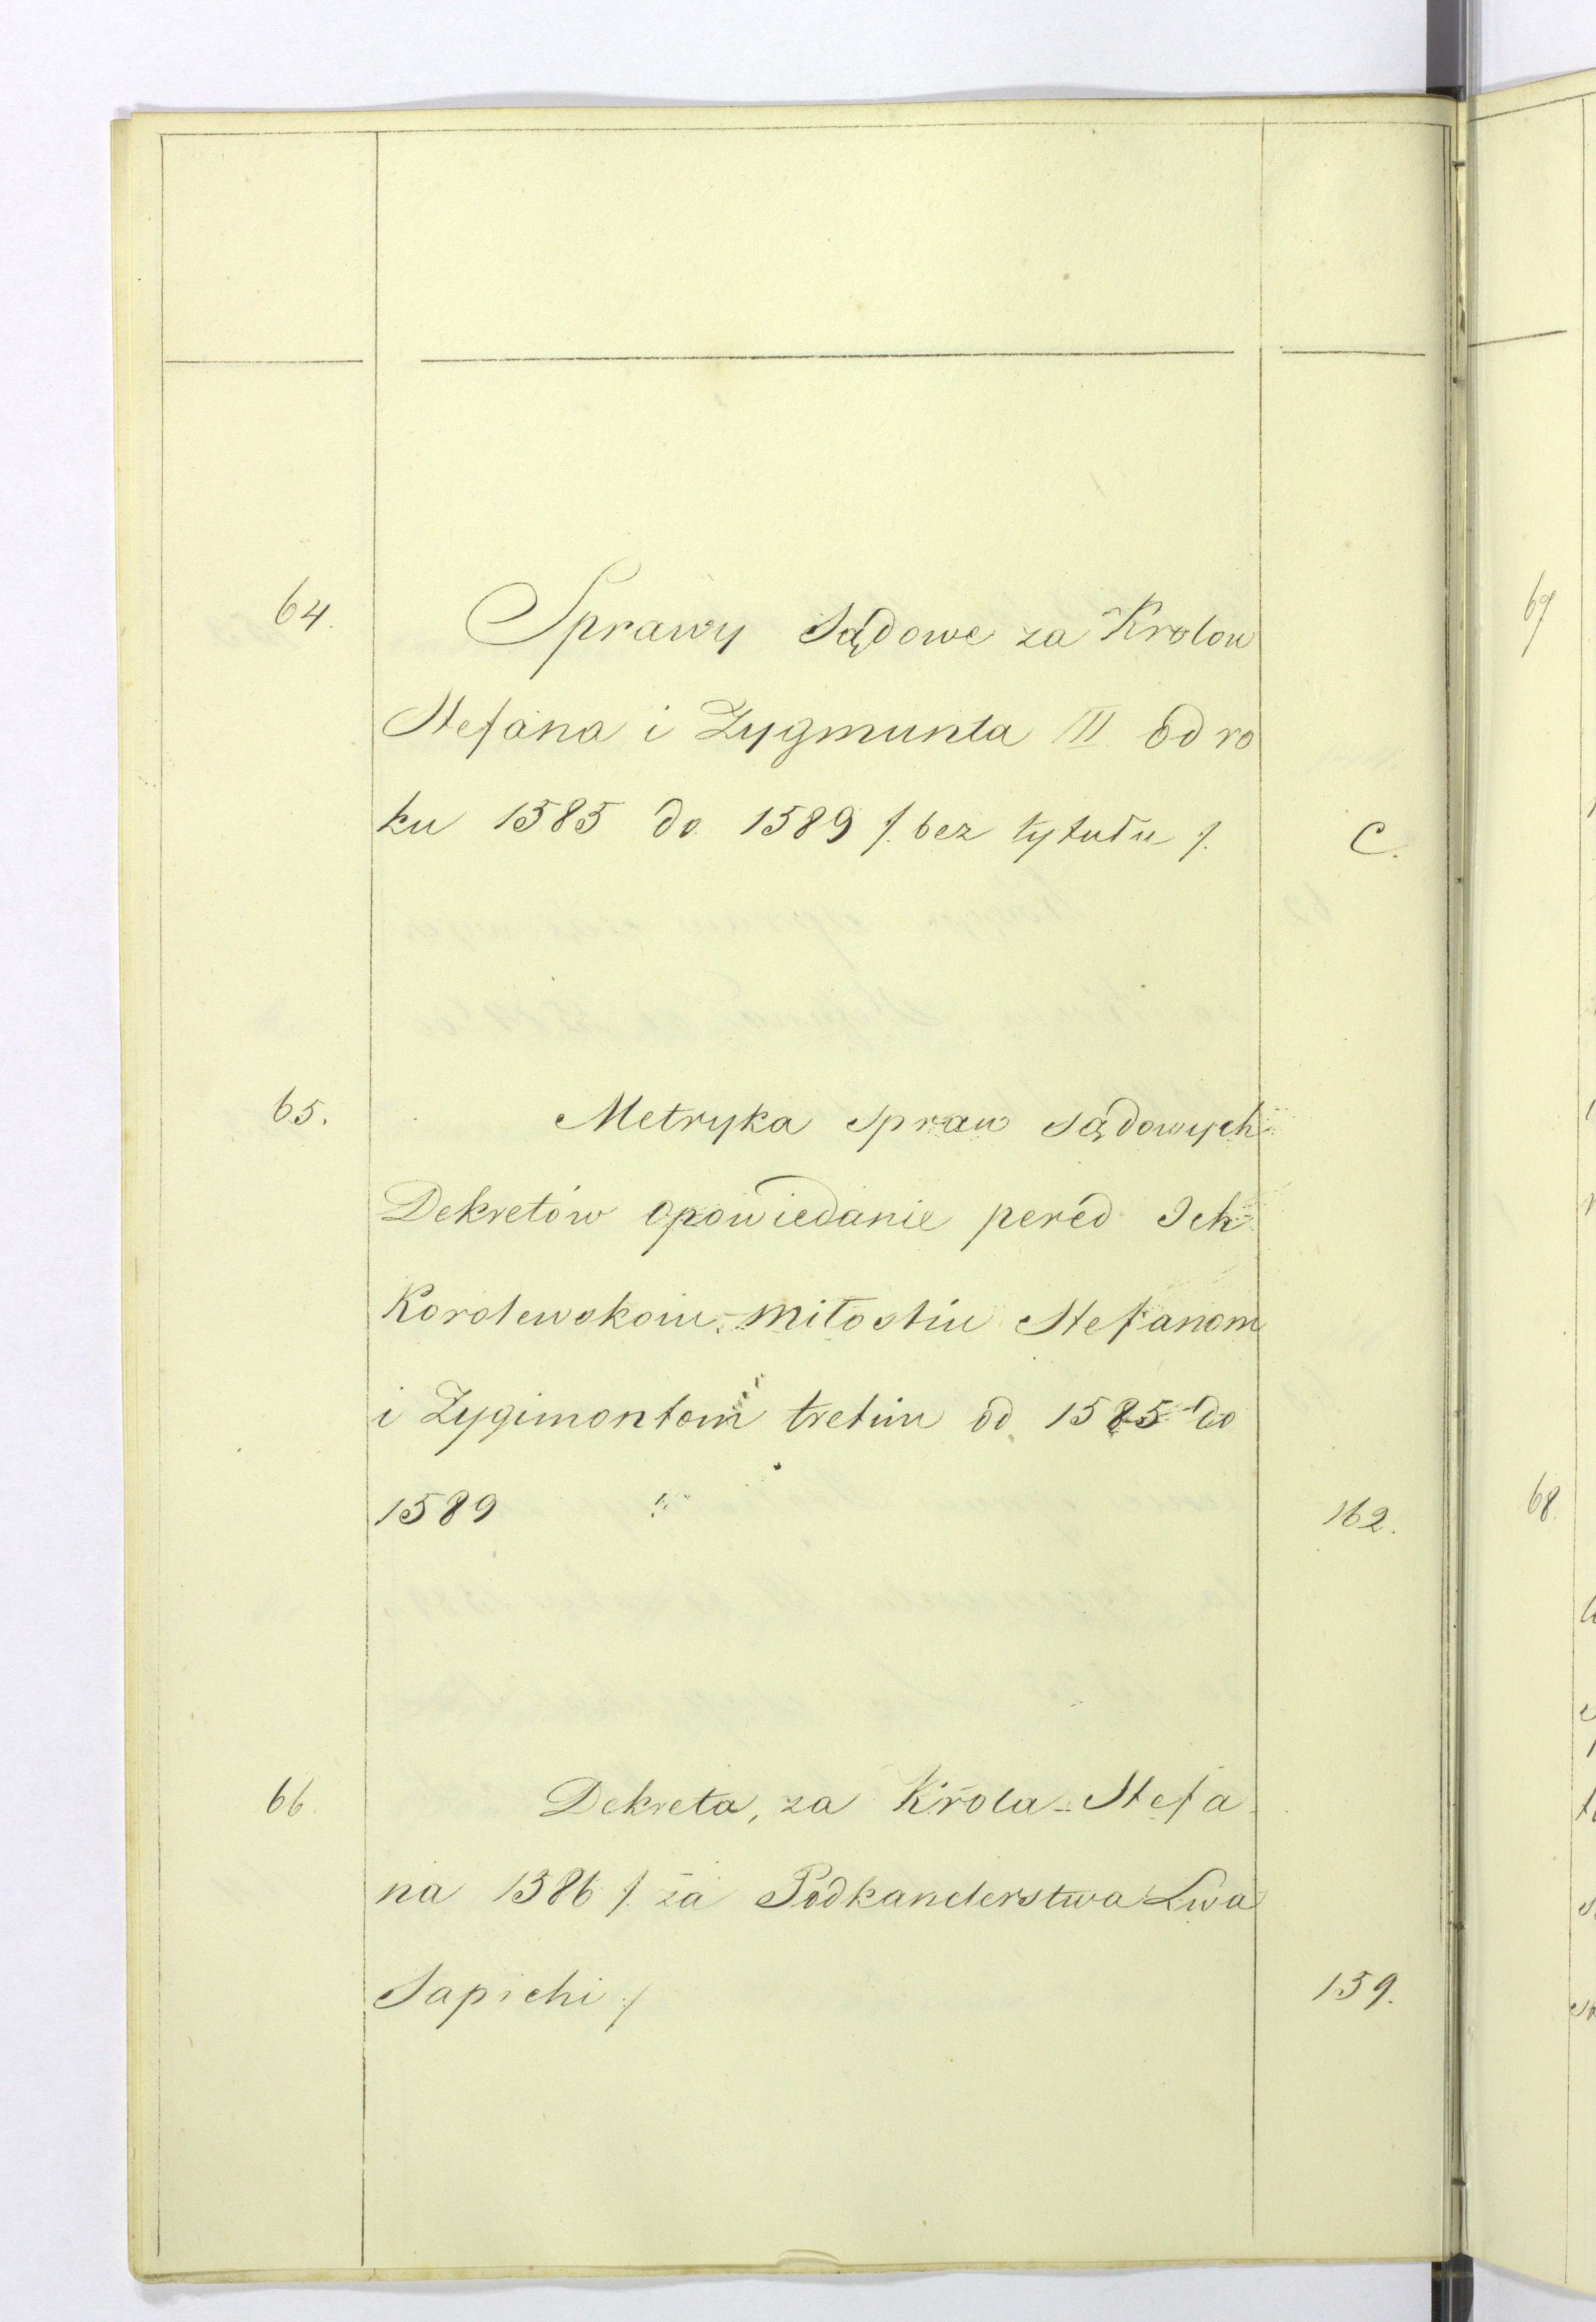 64. Sprawy Sądowe za Krolow
Stefana i Zygmunta III od ro
ku 1585 do 1589 /. bez tytułu /. C.
65. Metryka Spraw Sądowych
Dekretów opowiedanie pered Ich
Korolewskoiu miłostiu Stefanom
i Zygimontom tretim od 1585 do
1589 162.
66. Dekreta, za Króla Stefa
na 1586 /. za Podkanclerstwa Lwa
Sapiehi ./ 159.
67
68.